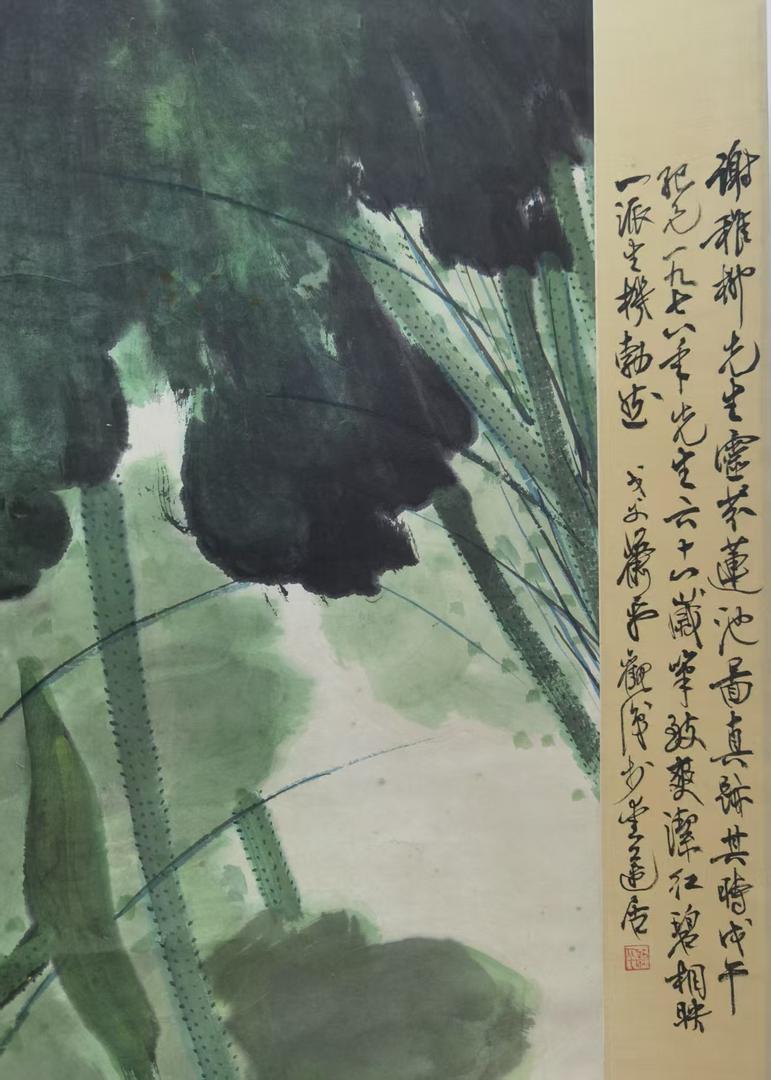 謝稚柳先生靈蓮池圖真跡其時戊午
紀元一九七八年先生六十八歲筆致爽潔紅碧相映
一派生機勃然 觀後於蓮居